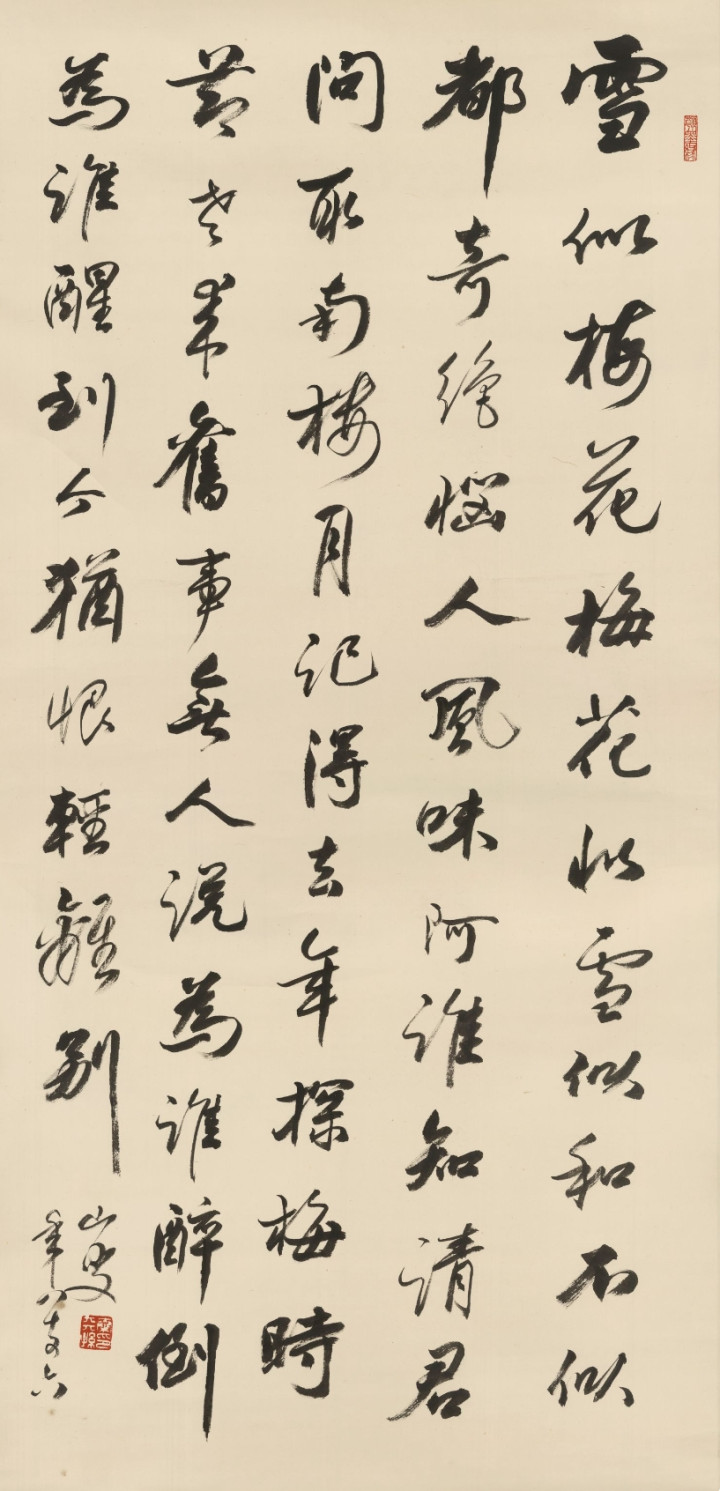 雪似梅花梅花似雪似和不似
都奇絕惱人風味阿誰知請君
問取南樓月記得去年探梅時
節老來舊事無人說為誰醉倒
為誰醒到今猶恨輕離別
山叟
年八六